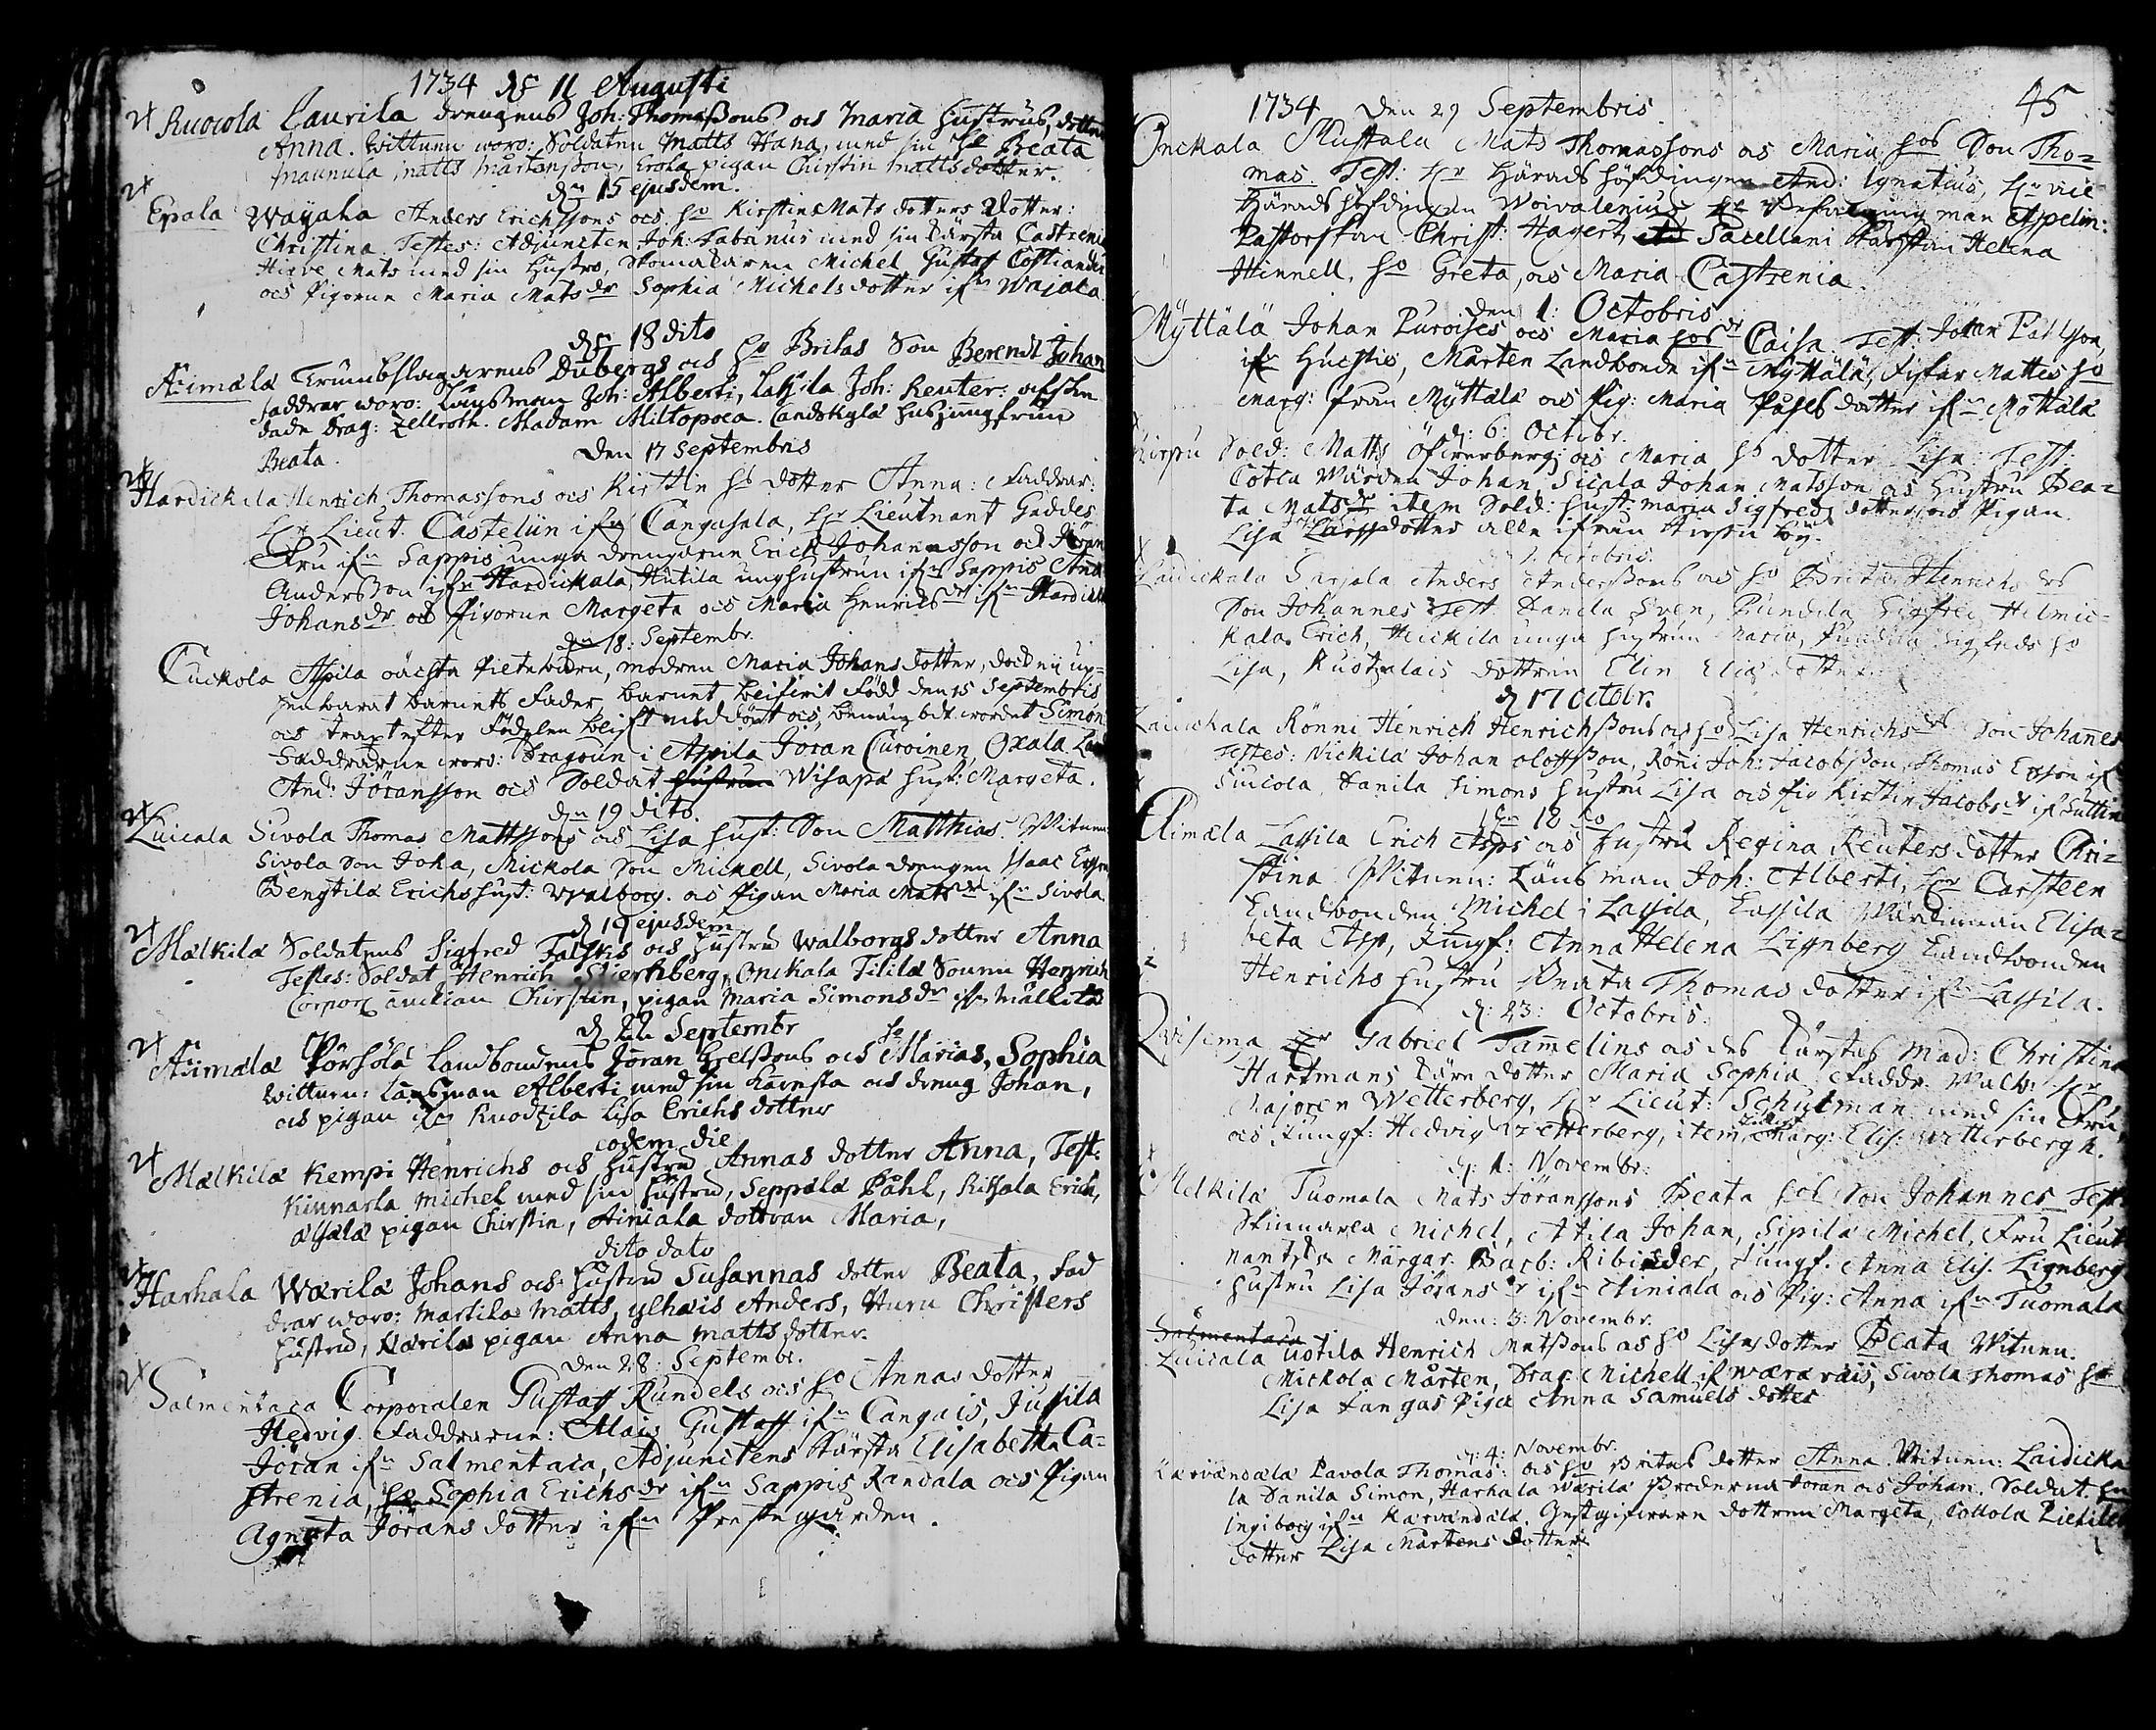 1734 den 11 Augusti
Ruocola Laurila drengens Joh: Thomassons och Maria Hustrus, dotter
Anna. Wittnen woro: Soldaten Matts Hana, med sin H:o Beata
Maunula Matts Mårtensson, Erola pigan Chirstin Mattsdotter.
den 15 ejusdem.
Epala Wäyaha Anders Erichssons och h:o Kirstin Mats dotters Dotter:
Christina. Testes: Adjuncten Joh: Fabrinus med sin Kärsta Castrenia
Mats med sin Hustro, Skomakaren Michel Gustaf
och Pigorne Maria Mats dr Sophia Michels dotter ifrn Wajala
den 18 dito
Aimälä Trumbslagarens Dubergs och h:o Britas Son Berendt Johan
faddrar woro: Länsman Joh: Alberti, Lassila Joh: Reuter: afsken
dade Drag: Zellroth. Madam Miltopoea. Landskylä husjungfrun
Beata.
Den 17 Septembris
Hardickala Henrich Thomassons och Kirstin hs dotter Anna: Faddrar:
Hr Lieut. Castelün ifrn Cangasala, Hr Lieutnant Gaddes
Fru ifrn Sappis unga drengarne Erich Johansson och Jöran
Andersson ifrn Hardickala, Hutila unghustrun ifrn Sappis Anna
Johans dr och Pigorne Margeta och Maria Henrichs dr ifrn Hardickala
den 18: Septembr.
Cuckola Aspila oächta Pietebarn, modren Maria Johans dotter, dock ey up-
penbarat barnets Fader, barnet blifvit född den 15 Septembris
och straxt efter Födslen blift nöddöpt och benämbdt wordet Simon
Faddrarne woro: Dragoun i Aspila Jöran Curoinen, Oxala
And: Jöransson och Soldat hustrun Wisapä hust: Margeta.
den 19 dito.
Luicala Sivola Thomas Mattssons och Lisa hust: Son Matthias. Witnen
Sivola Son Joha, Mickola Son Mickell, Sivola drengen Isaac
Bengtila Erichs hust: Walborg. och Pigan Maria Mats dr ifrn Sivola
d 19 ejusdem
Mälkilä Soldatens Sigfred Falskis och hustru Walborgs dotter Anna
Testes: Soldat Henrich Stierkberg, Onckala Tililä Sonen Henrich
Corporal Chirstin, pigan Maria Simons dr ifrn Mälkilä
d 22 Septembr
Aimälä Pörhölä Landbondens Jöran Grelssons och h:o Marias, Sophia
wittnen: Länsman Alberti med sin Käresta och dreng Johan,
och pigan ifrn Ruodzila Lisa Erichs dotter
eodem die
Mälkilä Kempi Henrichs och hustru Annas dotter Anna, Test:
Kinnarla Michel med sin hustru, Seppälä Påhl, Rissala Erich,
pigan Chirstin, Ainiala dottran Maria,
dito dato
Harhala Wärilä Johans och hustru Susannas dotter Beata, fad
drar woro: Martila Matts, ylhäis Anders, Huru Christers
hustru, Wärilä pigan Anna Matts dotter.
den 28: Septembr.
Salmentaca Corporalen Gustaff Rundels och h:o Annas dotter
Hedvig. Faddrarne: Maj: Gustaff ifrn Cangais, Jussila
Jöran ifrn Salmentaca, Adjunctens Kärsta Elisabetha Ca-
strenia, h:o Sophia Erichs dr ifrn Sappis, Randala och Pigan
Agneta Jörans dotter ifrn Prestegården.
45
1734 Den 29 Septembris
Onckala Mustala Mats Thomassons och Maria hos Son Tho-
mas. Test: Hr Häradshöfdingen And: Ignatius, Hr vice
Häradshöfdingen Woivalenius, Hr Befalning man Aspelin:
Pastorskan Christ: Hagert, Sacellani Kärstan Helena
Hinnell, h:o Greta, och Maria Castrenia.
den 1: Octobris
Myttälä Johan Puroises och Maria hos dr Caisa. Test: Johan Påhlsson,
ifrn Huestis, Mårten Landbonde ifrn Myttälä, Fiskar Mattes h:o
Marg: från Myttälä och Pig: Maria Påhls dotter ifrn Myttälä
d: 6: Octobr.
Hirsu Sold: Matts Öfverberg: och Maria hs dotter Lisa. Test:
Cotca Wärden Johan Sicala Johan Matsson och Hustru Bea-
ta Mats dr item Sold: hust: Maria Sigfreds dotter och Pigan.
Lisa Larsdotter alle ifrån Hirsu by.
Octobris.
Laidickala Sarjala Anders Anderssons och h:o Brita Henrichs drs
Son Johannes Test: Danila Sven, Pundila Sigfred Helmic-
kala Erich, Heickila unga hustrun Maria, Pundila Sigfreds h:o
Lisa, Ruotzalais dottren Elin Elias dotter.
d 17 Octobr.
Laidickala Rönni Henrich Henrichssons och h:o Lisa Henrichs drs Son Johannes
Testes: Nickilä Johan Oloffson, Röni Joh: Jacobsson, Thomas Ersson ifrn
Siucola, Danila Simons hustru Lisa och Pig Kirstin Jacobs dr ifrn Suttila
den 18 do
Aimäla Lassila Erich Asps och hustru Regina Reuters dotter Chri-
stina Witnen: Länsman Joh: Alberti, Hr Carsteen
Landbonden Michel i Lassila, Lassila Wärdinnan Elisa-
beta Asp, Jungf: Anna Helena Lignberg Landbonden
Henrichs hustru Beata Thomas dotter ifrn Lassila.
d: 23: Octobris:
Hr Gabriel Tammelins och des Kärstas Mad: Christina
Hartmans Kära dotter Maria Sophia. Faddr. Hr
Majoren Wetterberg, Hr Lieut: Schulman med sin Fru,
och Jungf: Hedvig Wetterberg, item Jungf Marg: Elis: Wetterbergh.
d: 1: Novembr:
Melkilä Tuomala Mats Jöranssons Beata hos Son Johannes Test:
Skinnarla Michel, Atila Johan, Sipilä Michel, Fru Lieut
nantskn Margar. Barb: Ribinder, Jungf. Anna Elis. Lignberg
hustru Lisa Jörans dr ifrn Ainiala och Pig: Anna ifrn Tuomala
den: 3: Novembr.
Salmentaca
Luicala Uotila Henrich Matssons och h:o Lisas dotter Beata Witnen.
Mickola Mårten, Drag: Michell ifrn Sivola Thomas h:o
Lisa Kangas Piga Anna Samuels dotter
d: 4: Novembr.
Kärväntälä Pavola Thomas: och h:o Britas dotter Anna. Witnen: Laidicka
la Danila Simon, Harhala Wärilä Bröderna Jöran och Johan. Soldat: hu
Ingiborg ifrn Kärväntälä. Gestgifvaren dottren Margeta, Cottola Pietilä
dotter Lisa Mårtens dotter